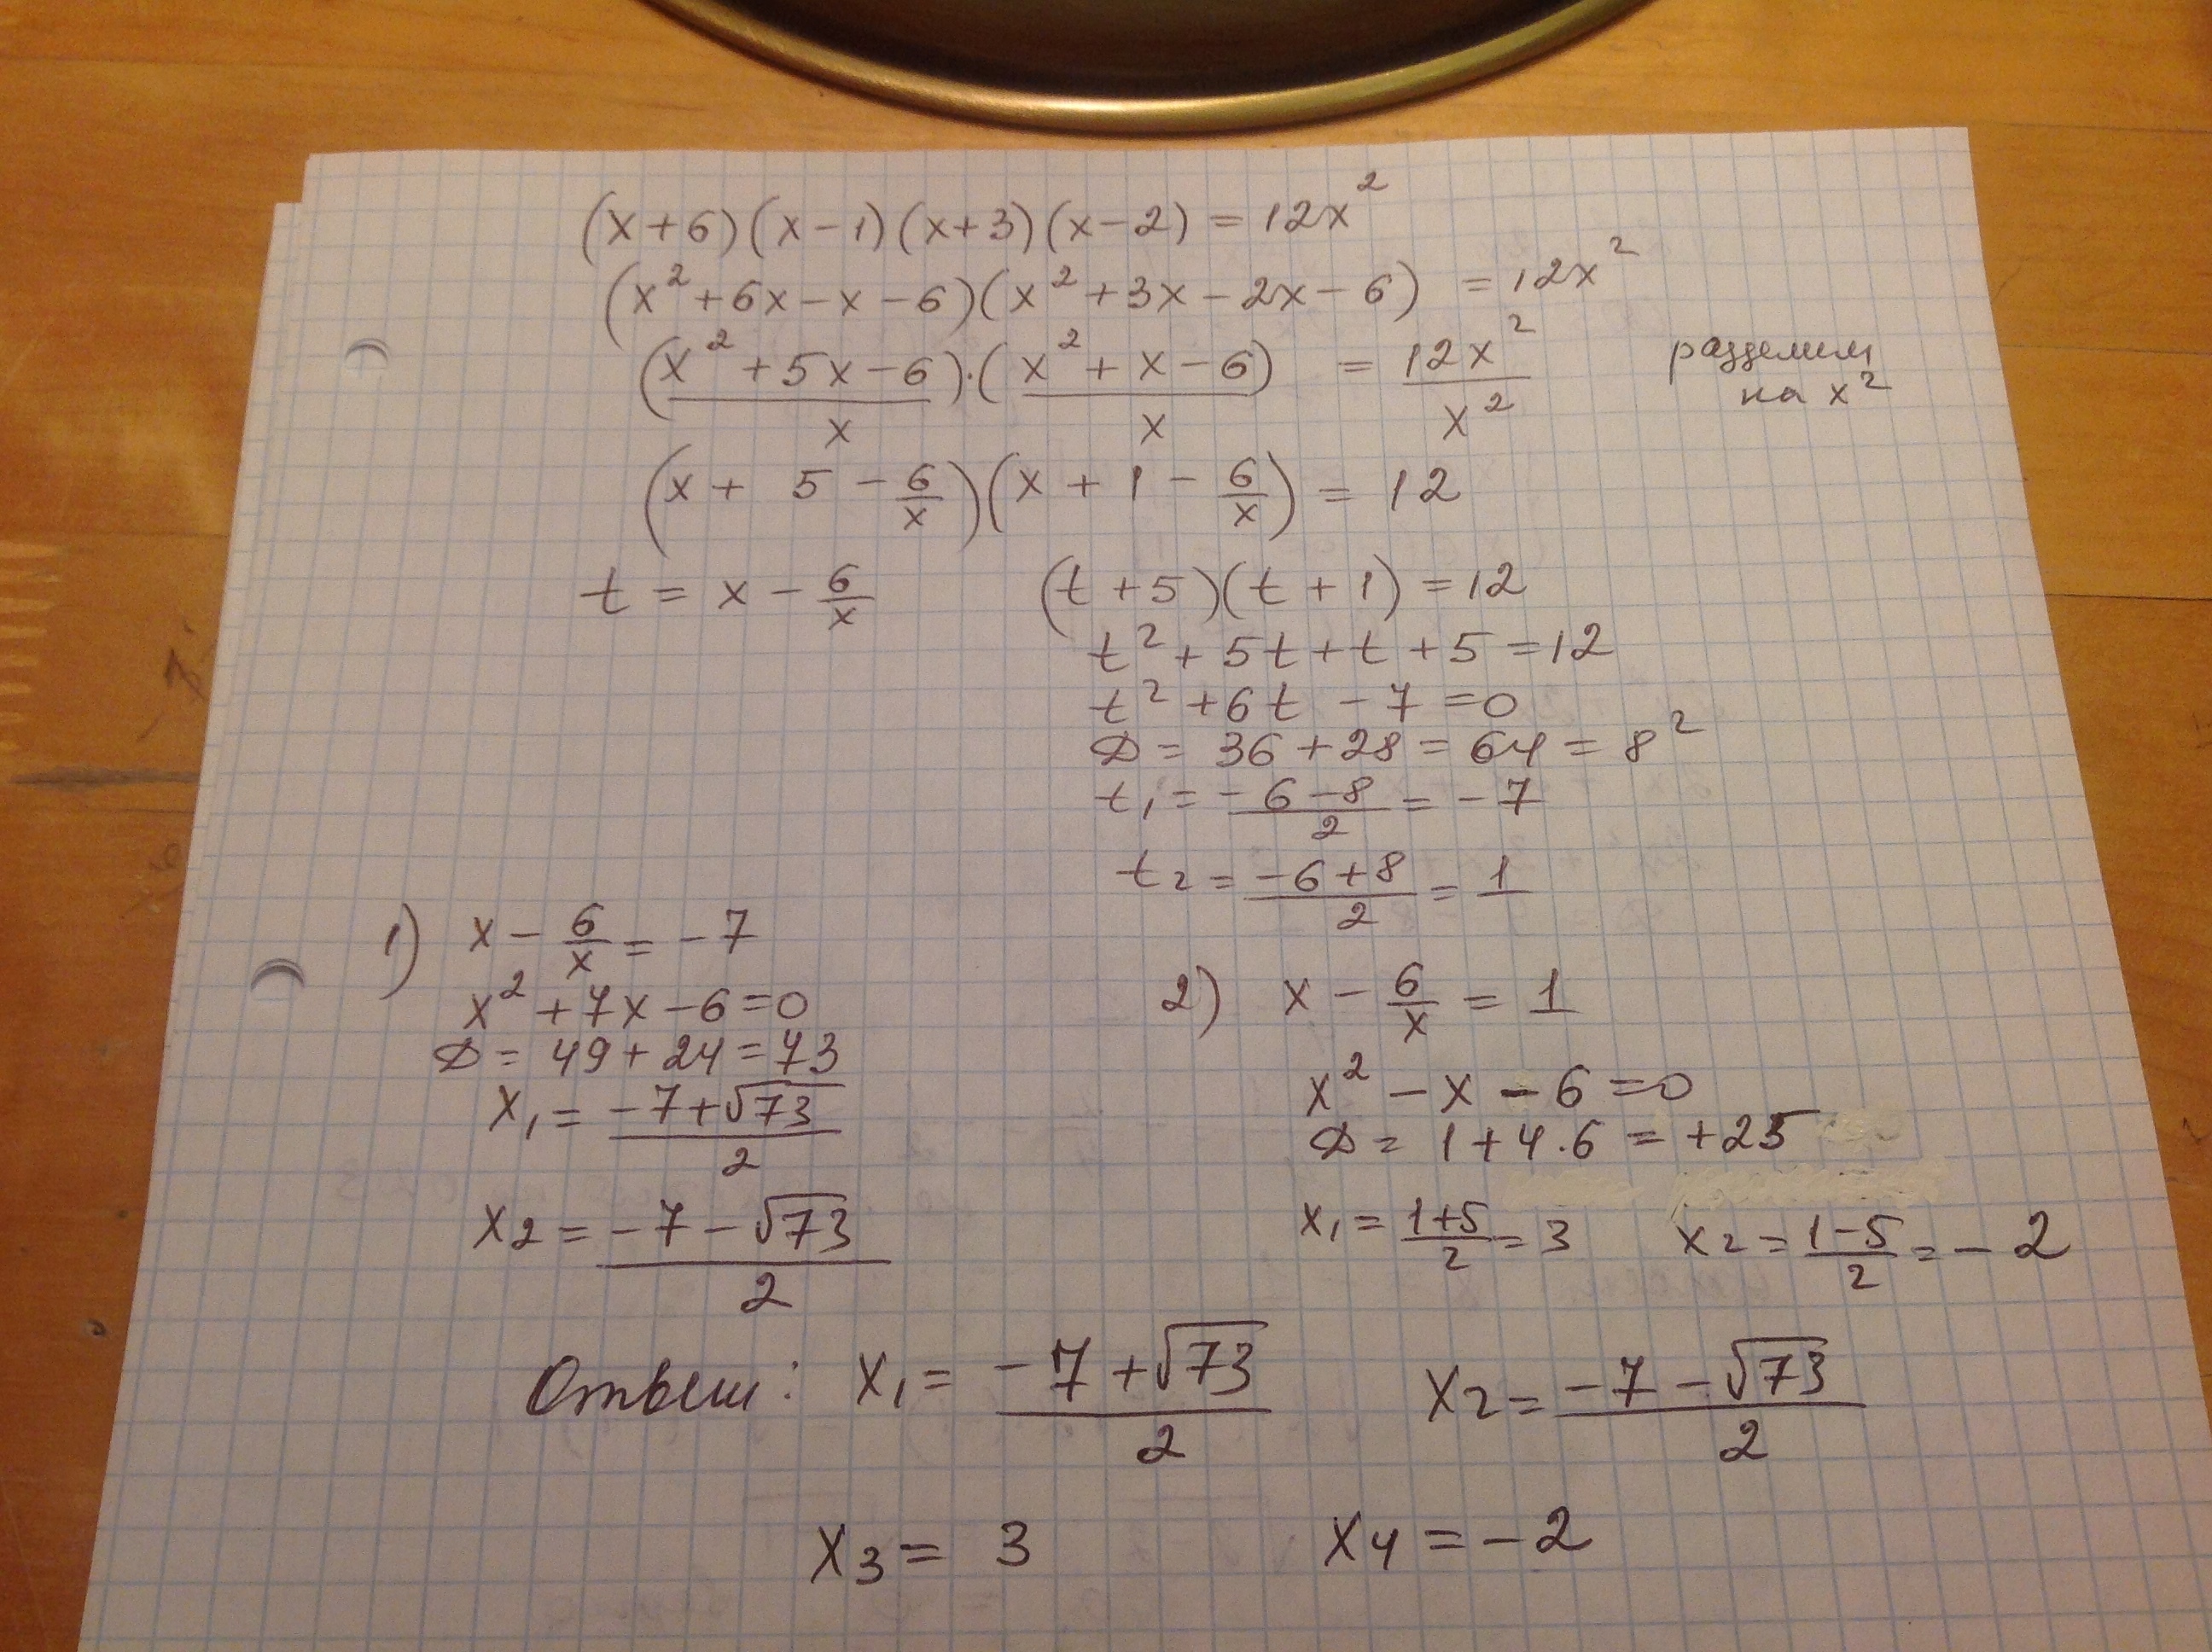 (x+6)(x-1)(x+3)(x-2) = 12x²
(x²+6x-x-6)(x²+3x-2x-6) = 12x²
(x²+5x-6)/x · (x²+x-6)/x = 12x²/x² разделим
на x²
(x + 5 - 6/x)(x + 1 - 6/x) = 12
t = x - 6/x (t+5)(t+1) = 12
t² + 5t + t + 5 = 12
t² + 6t - 7 = 0
D = 36 + 28 = 64 = 8²
t₁ = (-6-8)/2 = -7
t₂ = (-6+8)/2 = 1
1) x - 6/x = -7
x² + 7x - 6 = 0
D = 49 + 24 = 73
x₁ = (-7+√73)/2
x₂ = (-7-√73)/2
2) x - 6/x = 1
x² - x - 6 = 0
D = 1 + 4·6 = +25
x₁ = (1+5)/2 = 3 x₂ = (1-5)/2 = -2
Ответ: x₁ = (-7+√73)/2 x₂ = (-7-√73)/2
x₃ = 3 x₄ = -2